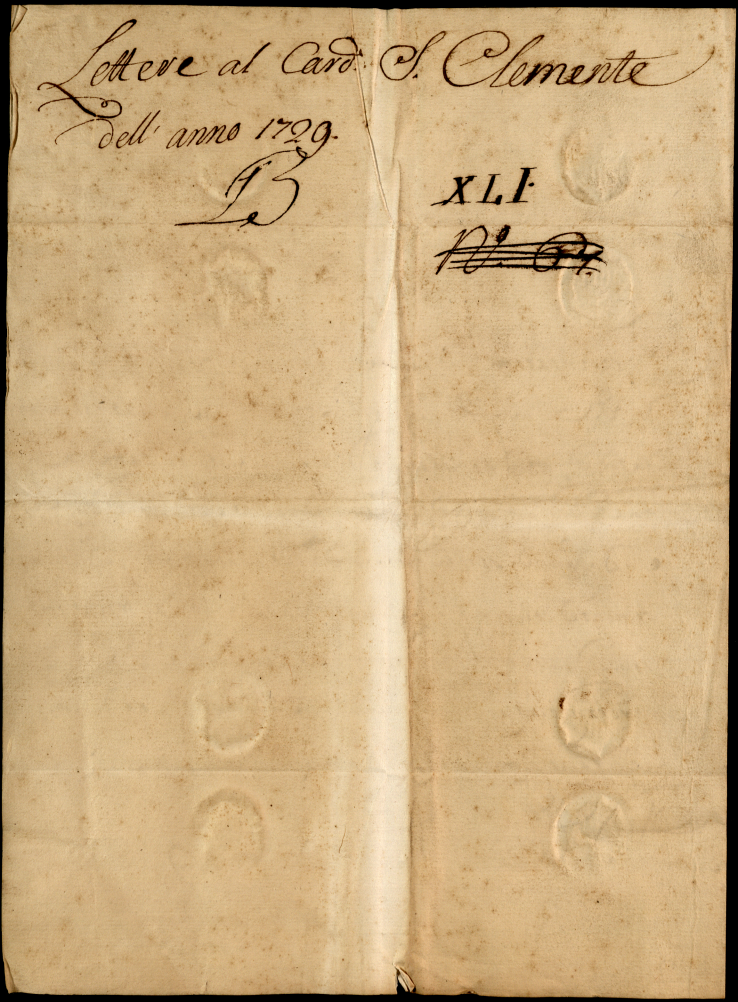 Lettere al Card. S. Clemente
dell' anno 1729.
B
XLI.